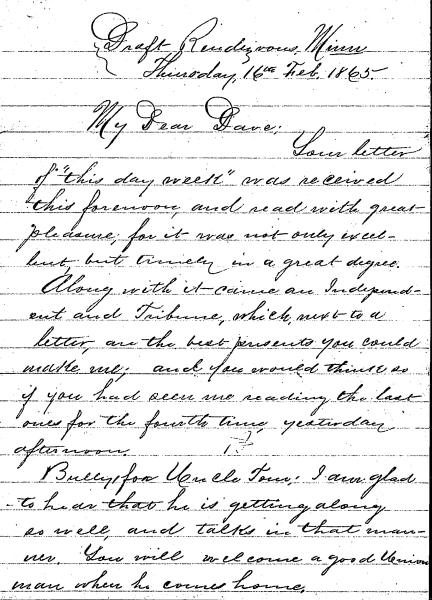 Draft Rendezvous, Minn
Thursday, 16th Feb, 1865
My Dear Dave:
Your letter
of "this day week" was received
this forenoon, and read with great
pleasure, for it was not only excel-
lent, but timely in a great degree.
Along with it came an Independ-
ent and Tribune, which, next to a
letter, are the best presents you could
make me; and you would think so
if you had seen me reading the last
ones for the fourth time, yesterday
afternoon.
Bully for Uncle Tom: I am glad
to hear that he is getting along
so well, and talks in that man-
ner. You will welcome a good Union
man when he comes home.